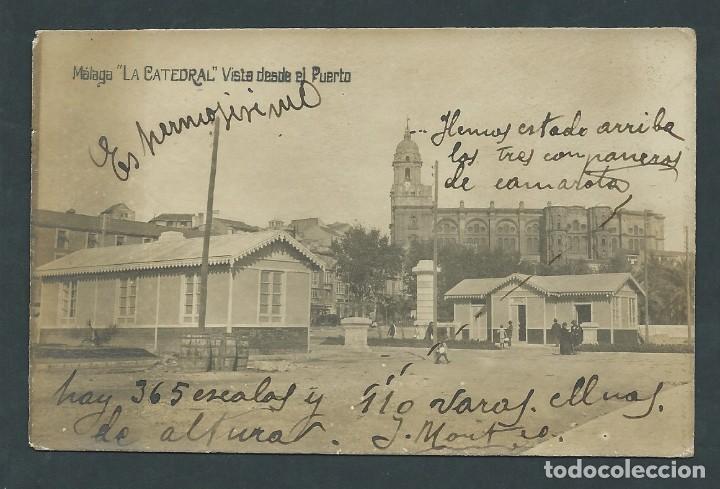 Málaga "LA CATEDRAL" Vista desde el Puerto
Es hermosisimo
... Hemos estado arriba
los tres companeros
de camarota
hay 365 escalos y 110 varas.
de altura. J. Mont
todocoleccion.net